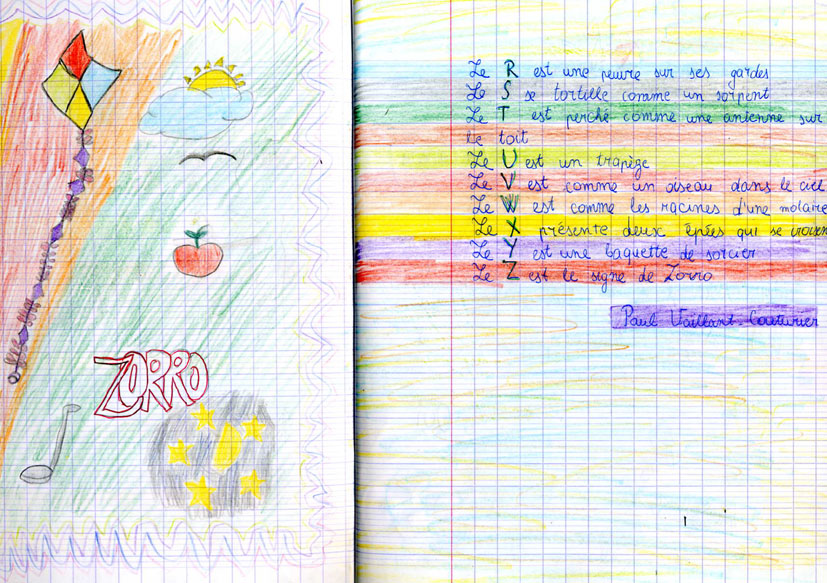 ZORRO
Le R est une peuvre sur ses gardes
Le S se tortille comme un serpent
Le T est perché comme une antenne sur
le toit
Le U est un trapèze
Le V est comme un oiseau dans le ciel
Le W est comme les racines d'une molaire
Le X présente deux épées qui se
Le Y est une baguette de sorcier
Le Z est le signe de Zorro
Paul Vaillant-Couturier